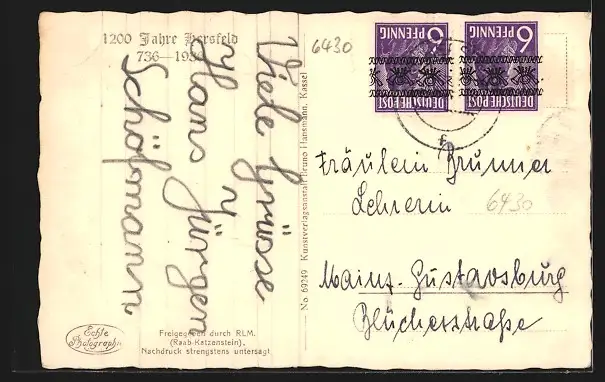 1200 Jahre Hersfeld
736-1936
Viele Grüsse
v
Hans Jürgen
Schößmann
Echte
Photographie
Freigegeben durch RLM.
(Raab-Katzenstein).
Nachdruck strengstens untersagt
No 69249 Kunstverlagsanstalt Bruno Hansmann, Kassel
6430
6 PFENNIG
DEUTSCHE POST
6 PFENNIG
DEUTSCHE POST
Fräulein Brunner
Lehrerin
6430
Mainz-Gustavsburg
Blücherstraße